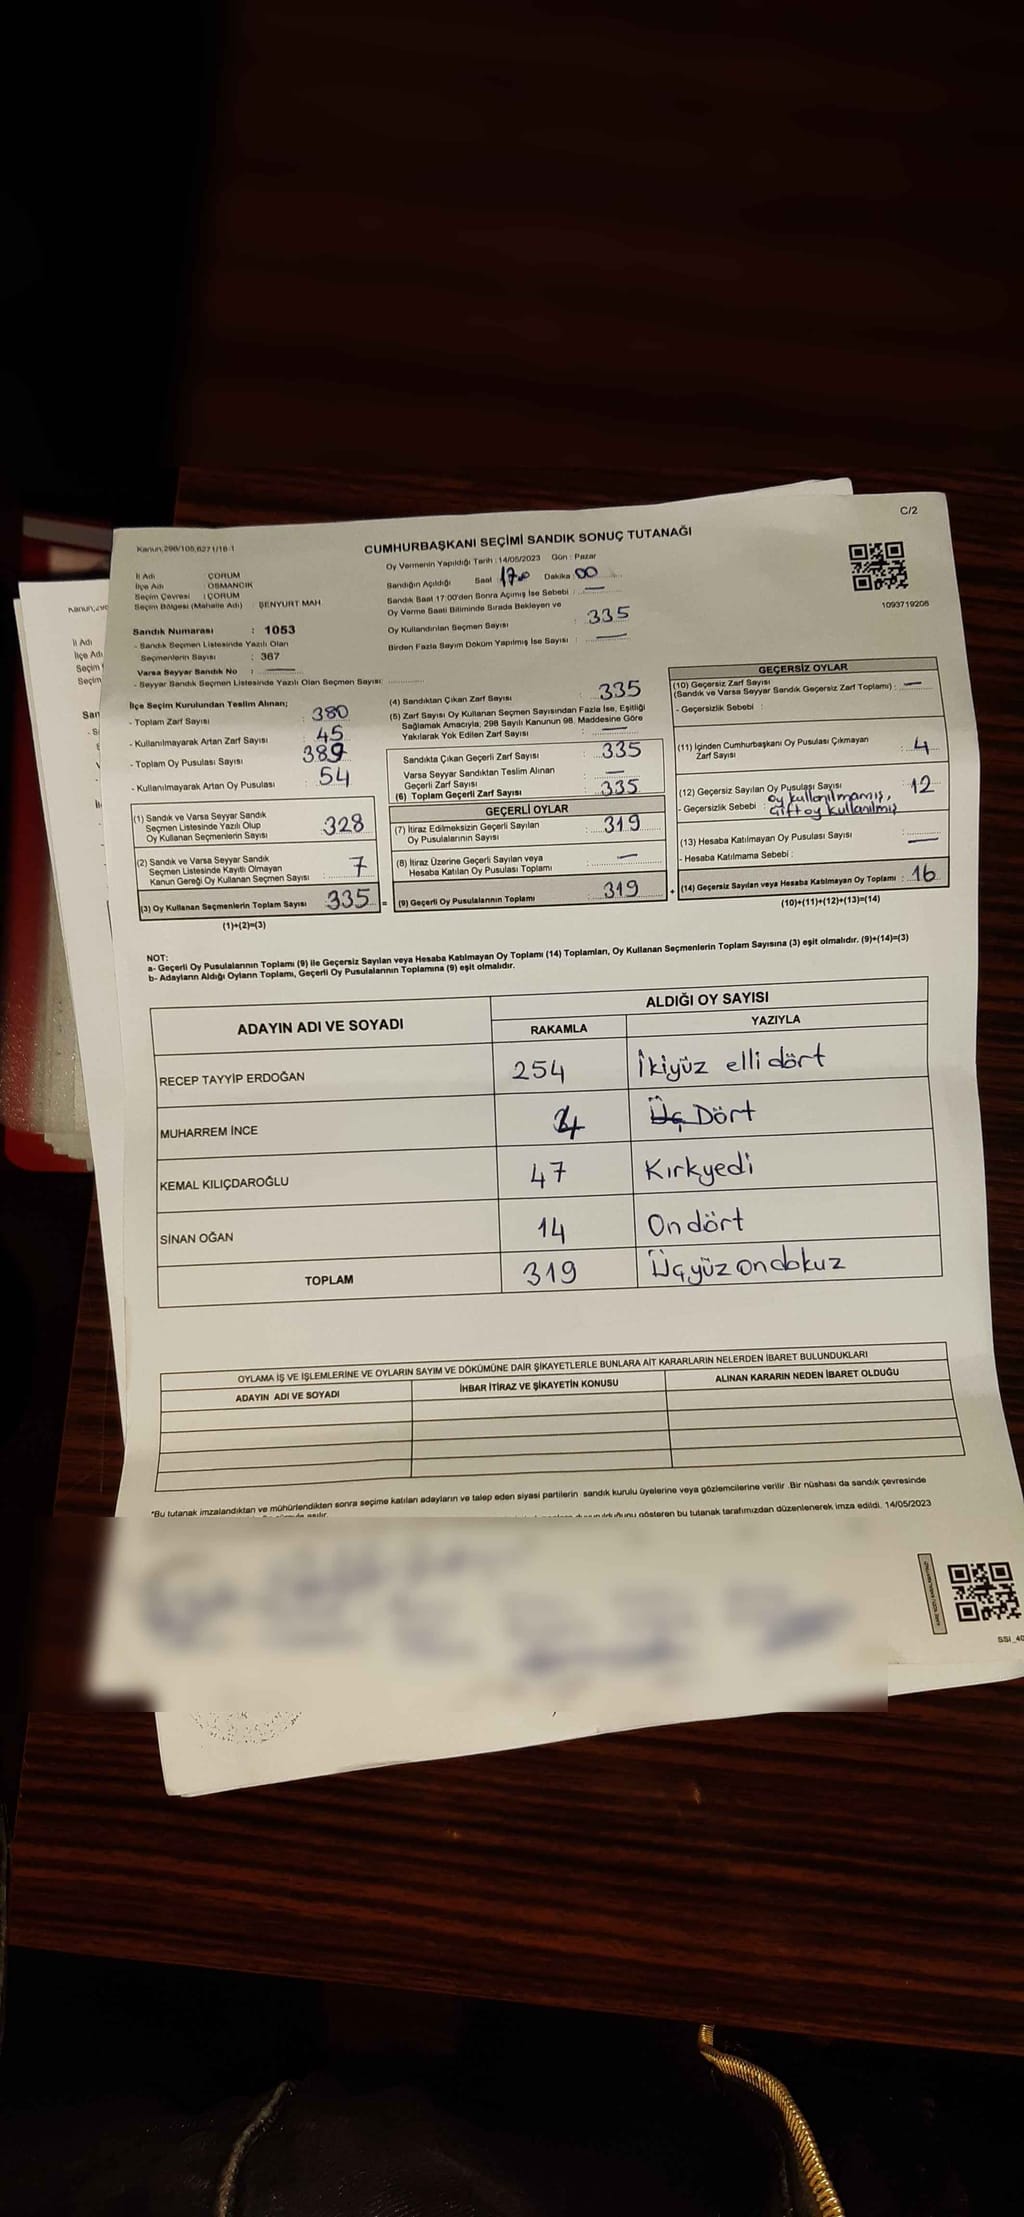 C/2
Kanun,298/105,6271/18-1
CUMHURBAŞKANI SEÇİMİ SANDIK SONUÇ TUTANAĞI
İl Adı : ÇORUM
İlçe Adı : OSMANCIK
Seçim Çevresi : ÇORUM
Seçim Bölgesi (Mahalle Adı) : ŞENYURT MAH
Sandık Numarası : 1053
- Sandık Seçmen Listesinde Yazılı Olan
Seçmenlerin Sayısı : 367
Varsa Seyyar Sandık No : —
- Seyyar Sandık Seçmen Listesinde Yazılı Olan Seçmen Sayısı:
Oy Vermenin Yapıldığı Tarih : 14/05/2023 Gün : Pazar
Sandığın Açıldığı Saat 17:00 Dakika 00
Sandık Saat 17:00'den Sonra Açılmış İse Sebebi : —
Oy Verme Saati Bitiminde Sırada Bekleyen ve
Oy Kullandırılan Seçmen Sayısı : 335
Birden Fazla Sayım Döküm Yapılmış İse Sayısı : —
1093719208
İlçe Seçim Kurulundan Teslim Alınan;
- Toplam Zarf Sayısı : 380
- Kullanılmayarak Artan Zarf Sayısı : 45
- Toplam Oy Pusulası Sayısı : 389
- Kullanılmayarak Artan Oy Pusulası : 54
(1) Sandık ve Varsa Seyyar Sandık
Seçmen Listesinde Yazılı Olup
Oy Kullanan Seçmenlerin Sayısı : 328
(2) Sandık ve Varsa Seyyar Sandık
Seçmen Listesinde Kayıtlı Olmayan
Kanun Gereği Oy Kullanan Seçmen Sayısı : 7
(3) Oy Kullanan Seçmenlerin Toplam Sayısı : 335 =
(1)+(2)=(3)
(4) Sandıktan Çıkan Zarf Sayısı : 335
(5) Zarf Sayısı Oy Kullanan Seçmen Sayısından Fazla İse, Eşitliği
Sağlamak Amacıyla, 298 Sayılı Kanunun 98. Maddesine Göre
Yakılarak Yok Edilen Zarf Sayısı : —
Sandıkta Çıkan Geçerli Zarf Sayısı : 335
Varsa Seyyar Sandıktan Teslim Alınan
Geçerli Zarf Sayısı : —
(6) Toplam Geçerli Zarf Sayısı : 335
GEÇERLİ OYLAR
(7) İtiraz Edilmeksizin Geçerli Sayılan
Oy Pusulalarının Sayısı : 319
(8) İtiraz Üzerine Geçerli Sayılan veya
Hesaba Katılan Oy Pusulası Toplamı : —
(9) Geçerli Oy Pusulalarının Toplamı : 319 +
GEÇERSİZ OYLAR
(10) Geçersiz Zarf Sayısı
(Sandık ve Varsa Seyyar Sandık Geçersiz Zarf Toplamı) : —
- Geçersizlik Sebebi :
(11) İçinden Cumhurbaşkanı Oy Pusulası Çıkmayan
Zarf Sayısı : 4
(12) Geçersiz Sayılan Oy Pusulası Sayısı : 12
- Geçersizlik Sebebi : oy kullanılmamış,
çift oy kullanılmış
(13) Hesaba Katılmayan Oy Pusulası Sayısı : —
- Hesaba Katılmama Sebebi :
(14) Geçersiz Sayılan veya Hesaba Katılmayan Oy Toplamı : 16
(10)+(11)+(12)+(13)=(14)
NOT:
a- Geçerli Oy Pusulalarının Toplamı (9) ile Geçersiz Sayılan veya Hesaba Katılmayan Oy Toplamı (14) Toplamları, Oy Kullanan Seçmenlerin Toplam Sayısına (3) eşit olmalıdır. (9)+(14)=(3)
b- Adayların Aldığı Oyların Toplamı, Geçerli Oy Pusulalarının Toplamına (9) eşit olmalıdır.
ADAYIN ADI VE SOYADI
ALDIĞI OY SAYISI
RAKAMLA YAZIYLA
RECEP TAYYİP ERDOĞAN 254 İkiyüz elli dört
MUHARREM İNCE 4 Üç Dört
KEMAL KILIÇDAROĞLU 47 Kırkyedi
SİNAN OĞAN 14 On dört
TOPLAM 319 Üçyüz ondokuz
OYLAMA İŞ VE İŞLEMLERİNE VE OYLARIN SAYIM VE DÖKÜMÜNE DAİR ŞİKAYETLERLE BUNLARA AİT KARARLARIN NELERDEN İBARET BULUNDUKLARI
ADAYIN ADI VE SOYADI İHBAR İTİRAZ VE ŞİKAYETİN KONUSU ALINAN KARARIN NEDEN İBARET OLDUĞU
*Bu tutanak imzalandıktan ve mühürlendikten sonra seçime katılan adayların ve talep eden siyasi partilerin sandık kurulu üyelerine veya gözlemcilerine verilir. Bir nüshası da sandık çevresinde
gösteren bu tutanak tarafımızdan düzenlenerek imza edildi. 14/05/2023
SSI_40
Kanun,
İl Adı
İlçe Adı
Seçim
Seçim